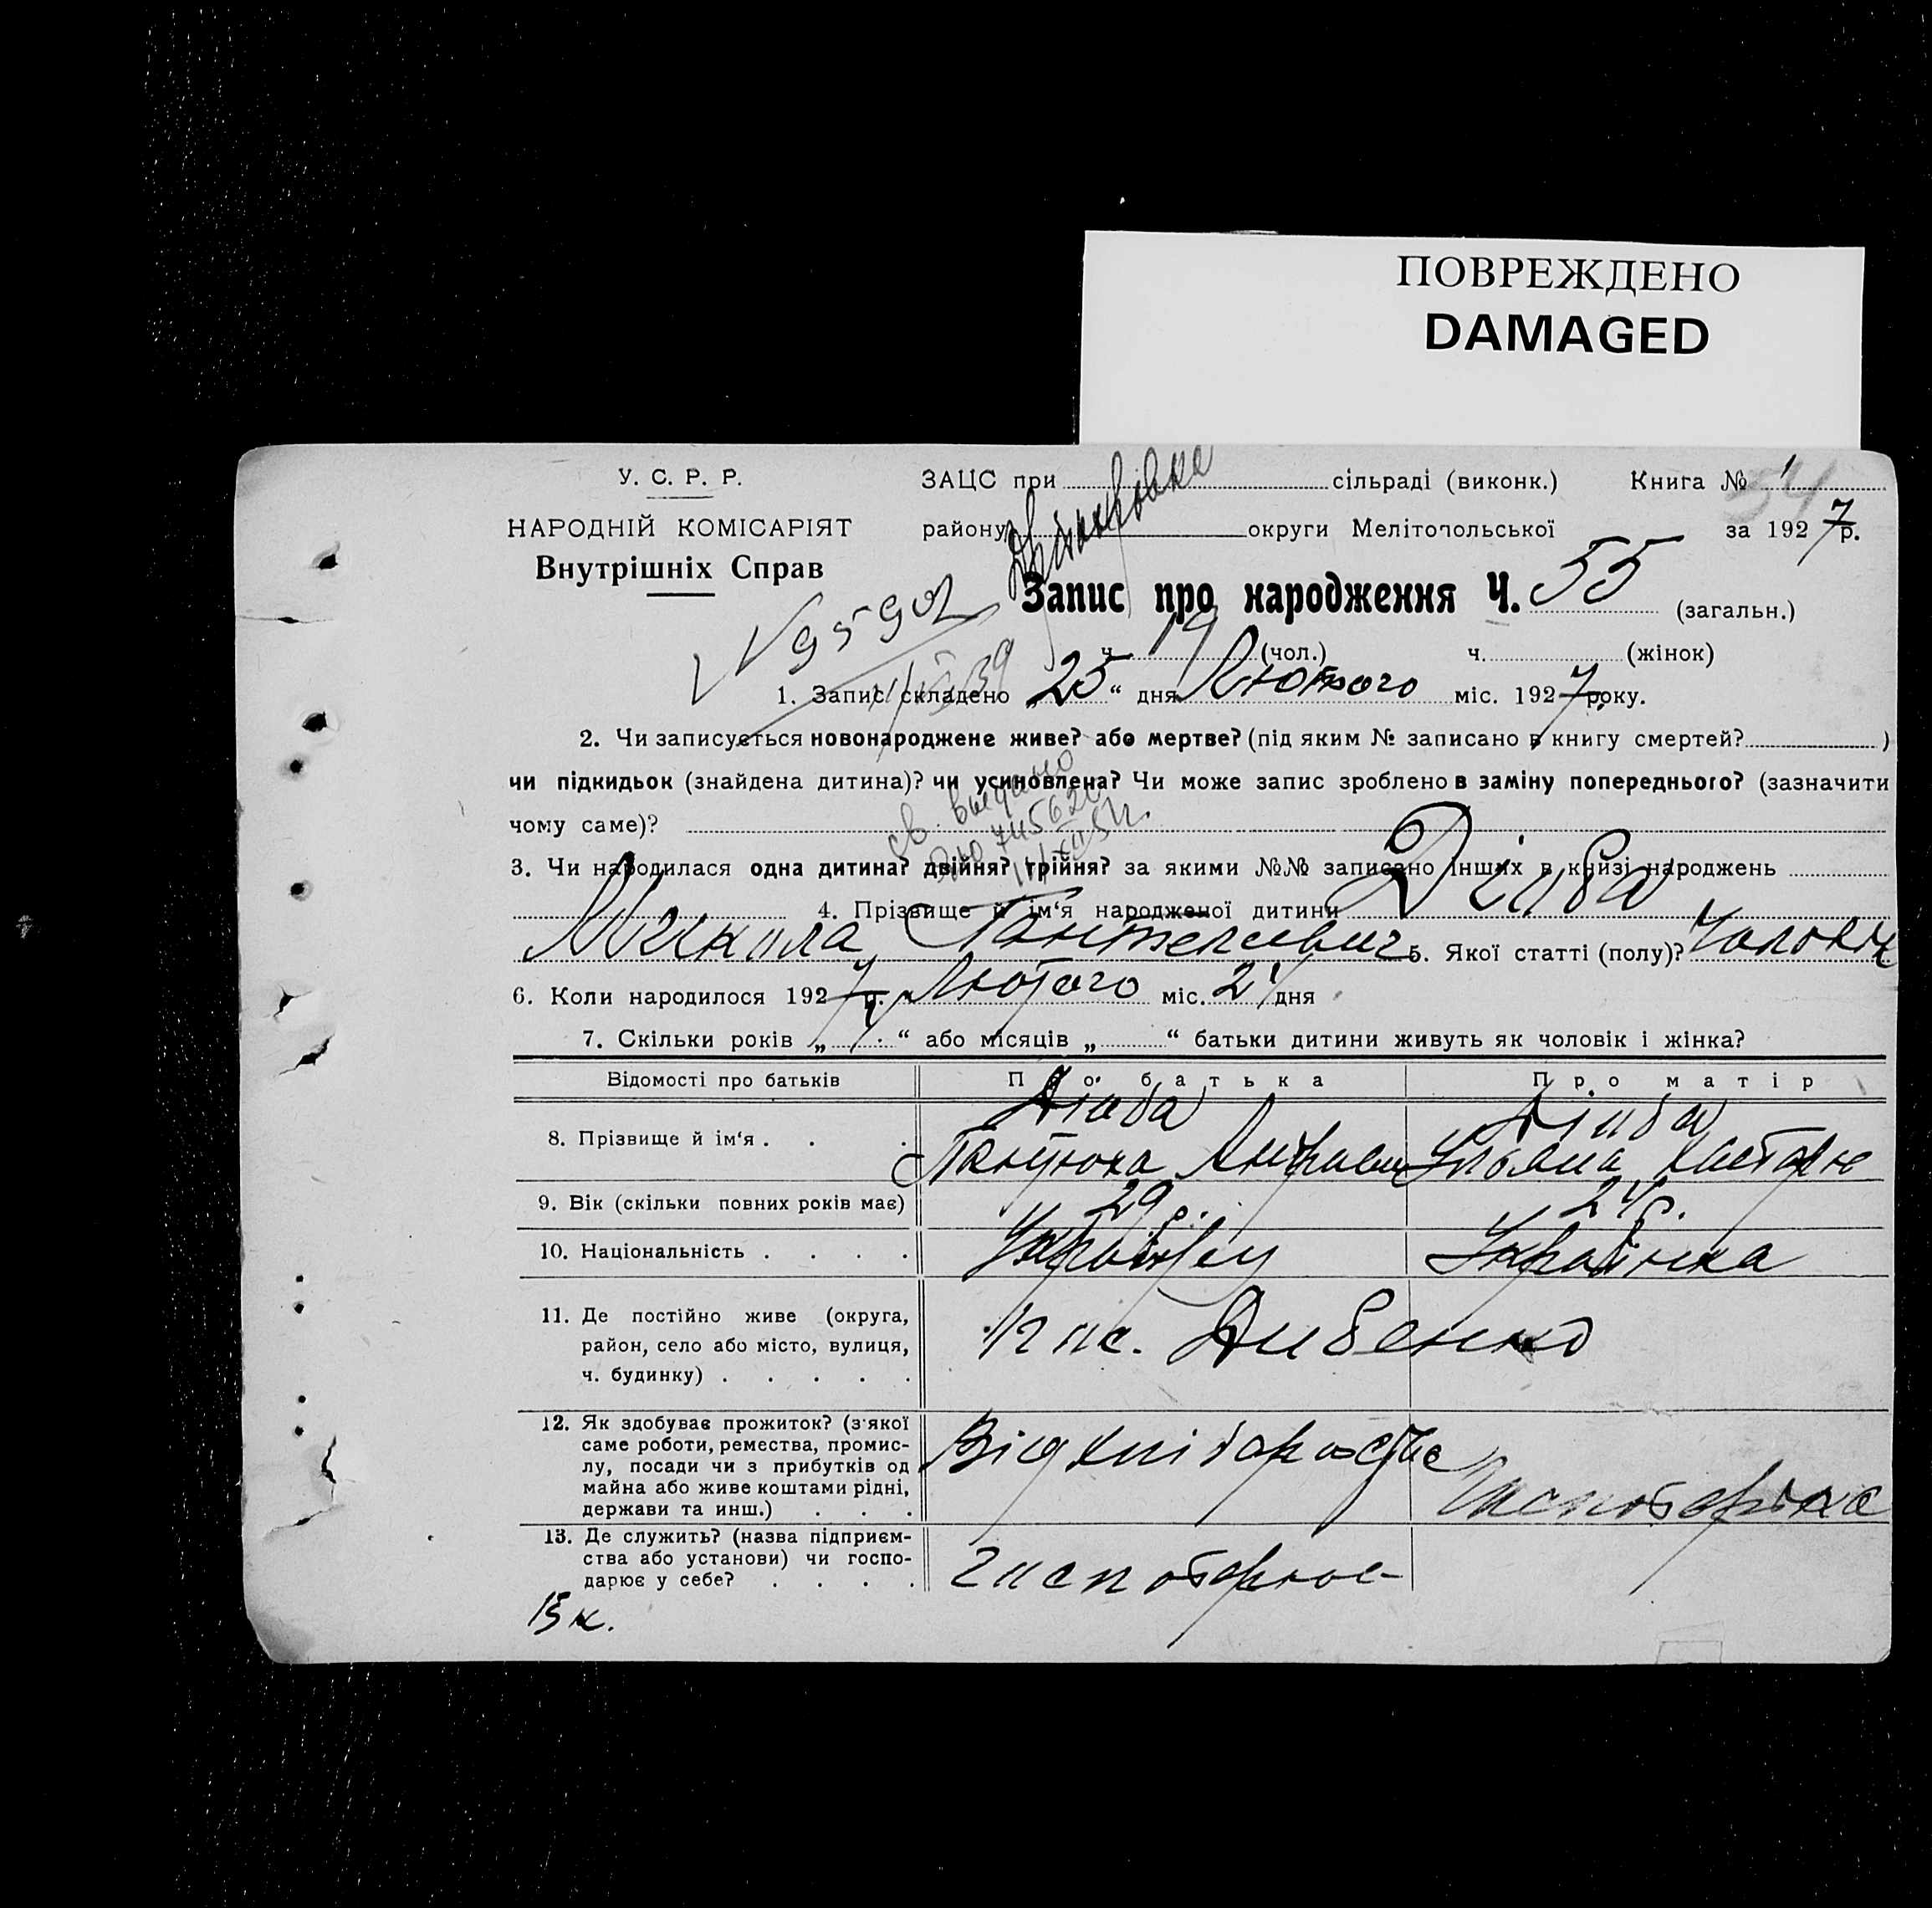 ПОВРЕЖДЕНО
DAMAGED
У. С. Р. Р.
НАРОДНІЙ КОМІСАРІЯТ
Внутрішніх Справ
ЗАЦС при сільраді (виконк.) Книга № 1
району округи Мелітопольської за 1927 р.
Запис про народження Ч. 55 (загальн.)
ч. 19 (чол.) ч. (жінок)
1. Запис складено „25“ дня Лютого міс. 1927 року.
2. Чи записується новонароджене живе? або мертве? (під яким № записано в книгу смертей? )
чи підкидьок (знайдена дитина)? чи усиновлена? Чи може запис зроблено в заміну попереднього? (зазначити
чому саме)?
3. Чи народилася одна дитина? двійня? трійня? за якими №№ записано інших в книзі народжень
4. Прізвище й ім'я народженої дитини Дзюба
Микола Пантелевич 5. Якої статті (полу)? Чоловіч
6. Коли народилося 1927 р. Лютого міс. 21 дня
7. Скільки років „7“ або місяців „ “ батьки дитини живуть як чоловік і жінка?
Відомості про батьків Про батька Про матір
8. Прізвище й ім'я . . .
9. Вік (скільки повних років має) 29 р. 24 р.
10. Національність . . . . Українец Українка
11. Де постійно живе (округа,
район, село або місто, вулиця,
ч. будинку) . . . . . Дибенко
12. Як здобуває прожиток? (з'якої
саме роботи, ремества, промис-
лу, посади чи з прибутків од
майна або живе коштами рідні,
держави та инш.) . . .
13. Де служить? (назва підприєм-
ства або установи) чи госпо-
дарює у себе? . . . .
15 к.